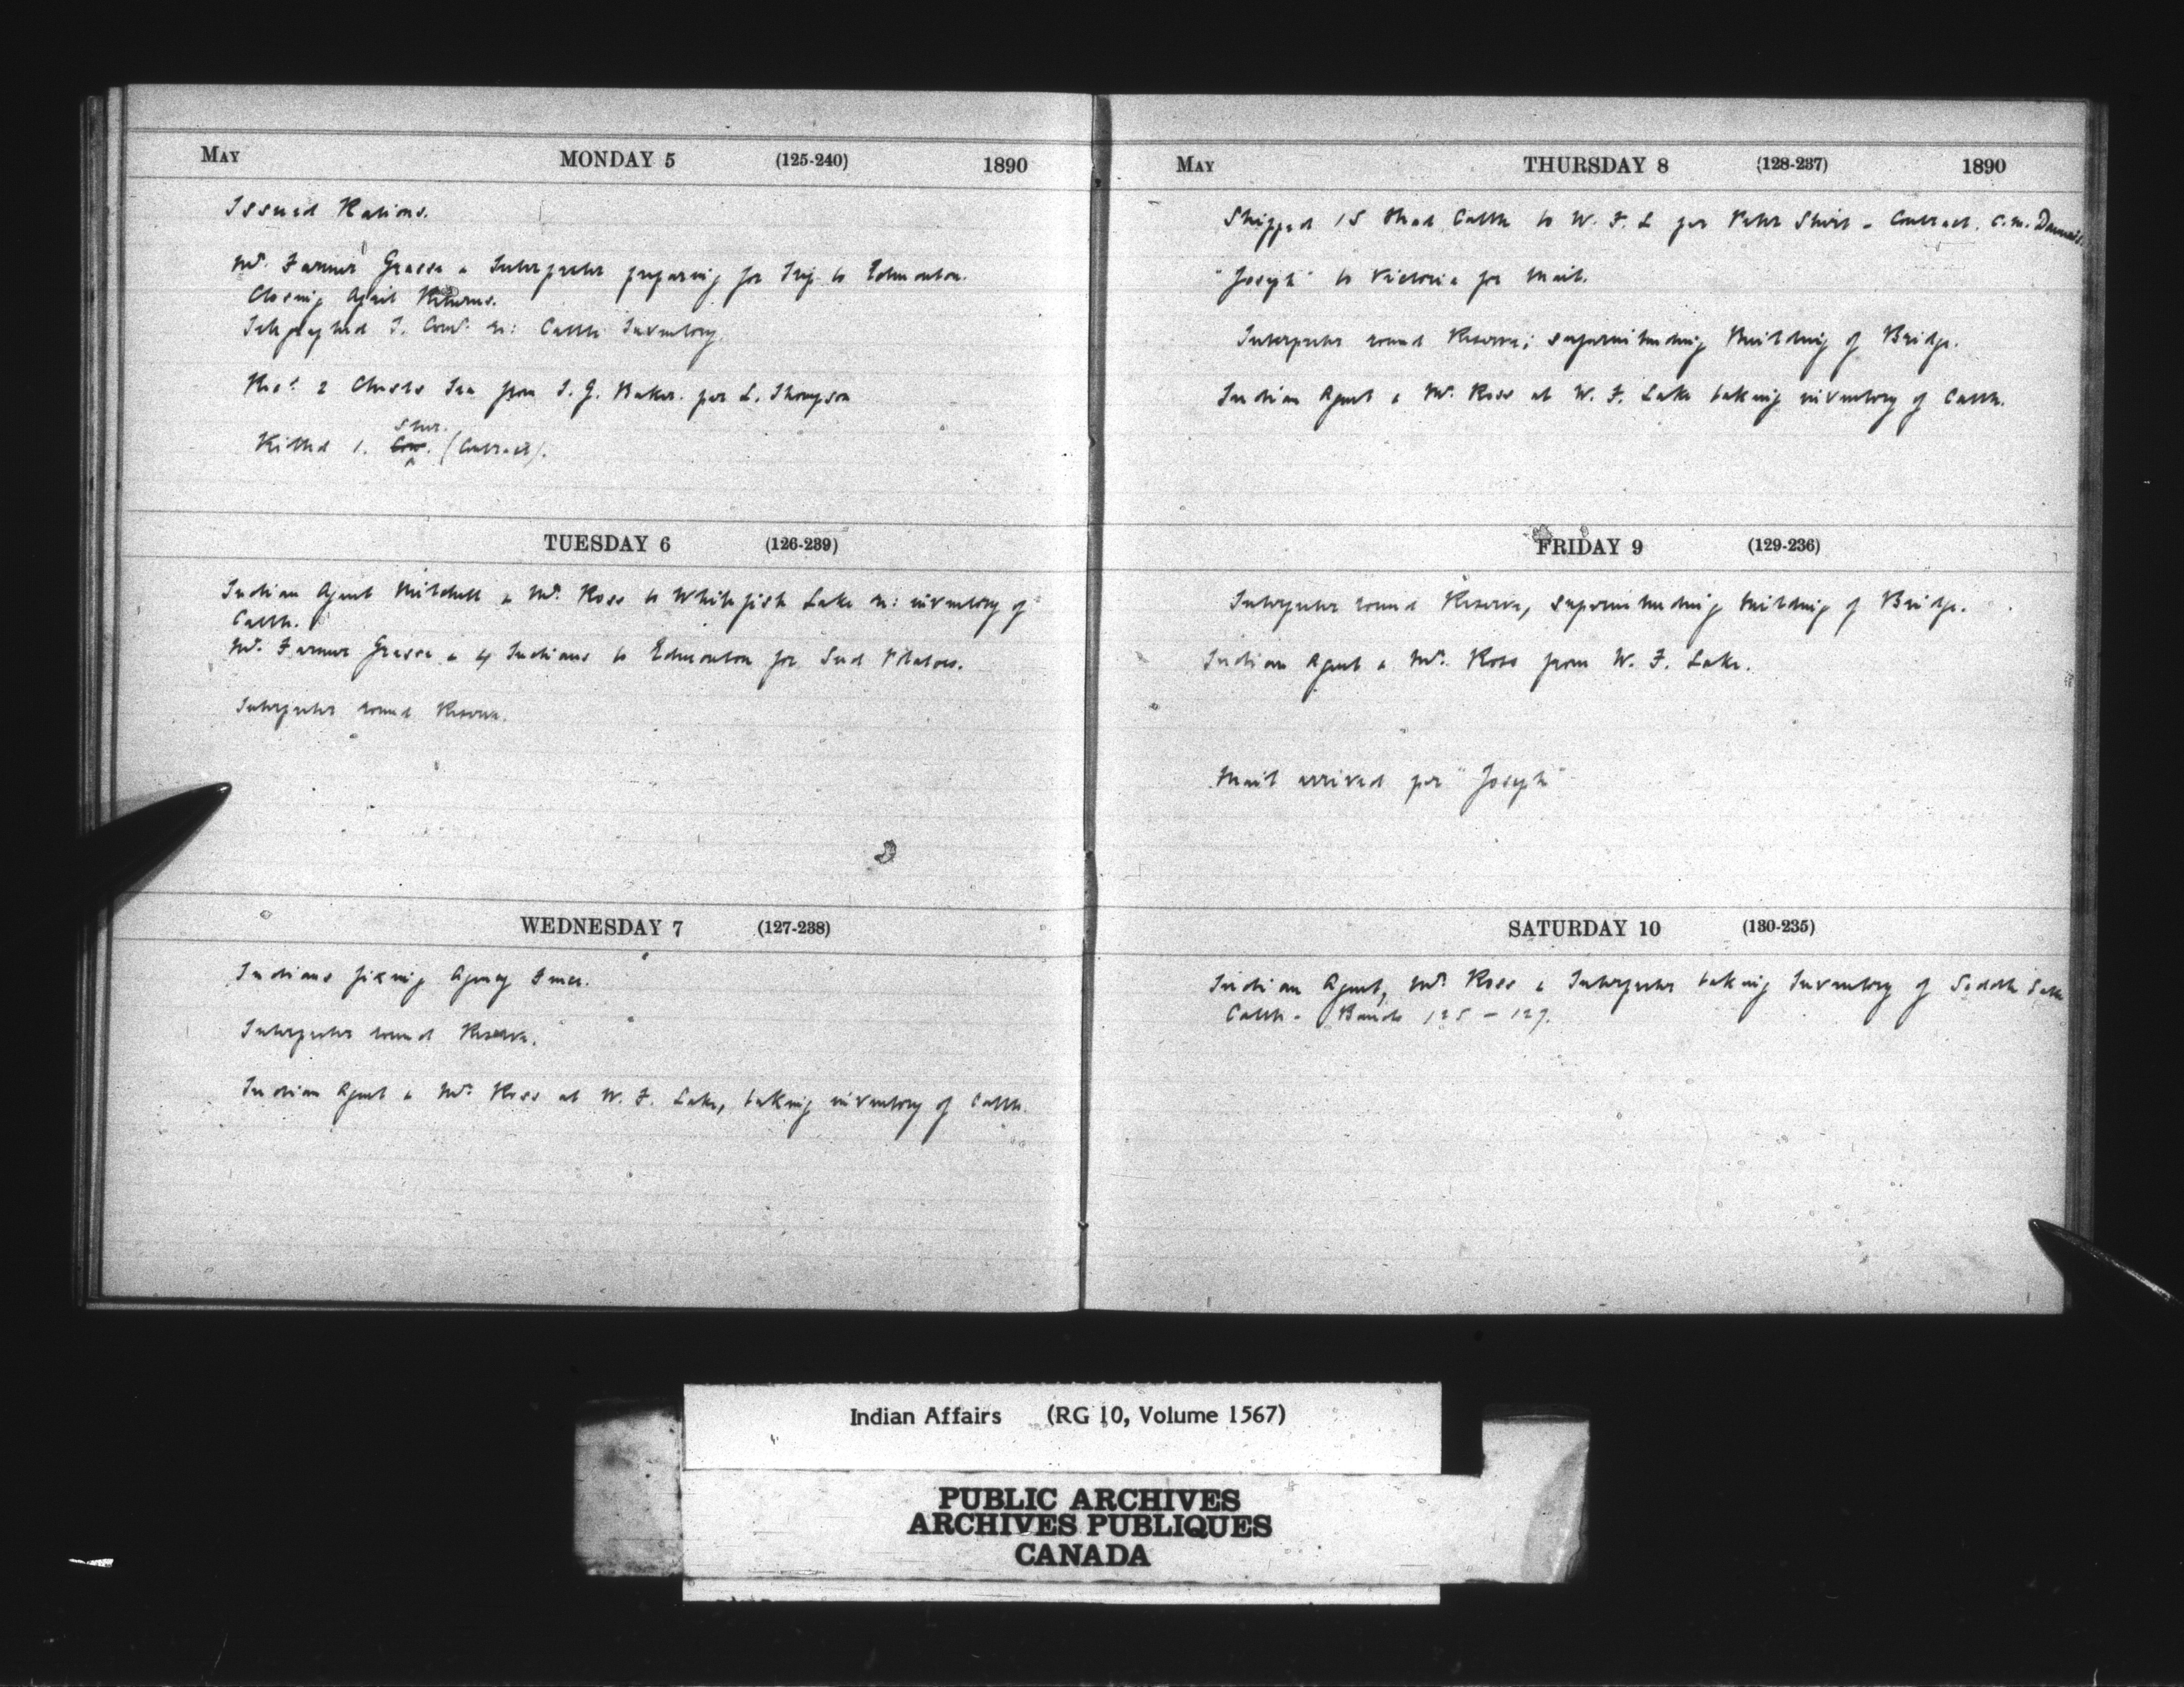 May MONDAY 5 (125-240) 1890
Issued Rations.
Mr. Farmer Grasse & Interpreter preparing for Trip to Edmonton.
Closing April Returns.
Telegraphed I. Comr. re: Cattle Inventory.
Recd. 2 Chests Tea from I. G. Baker. per L. Thompson
Steer.
Killed 1. Cow. (Contract).
TUESDAY 6 (126-239)
Indian Agent Mitchell & Mr. Ross to Whitefish Lake re: inventory of
Cattle.
Mr. Farmer Grasse & 4 Indians to Edmonton for Seed Potatoes.
Interpreter round Reserve.
WEDNESDAY 7 (127-238)
Indians fixing Agency Fence.
Interpreter round Reserve.
Indian Agent & Mr. Ross at W. F. Lake, taking inventory of Cattle.
May THURSDAY 8 (128-237) 1890
Shipped 15 Head Cattle to W. F. L per Peter Shirt - Contract. C. M. Daunais.
"Joseph" to Victoria for Mail.
Interpreter round Reserve; superintending Building of Bridge.
Indian Agent & Mr. Ross at W. F. Lake taking inventory of Cattle.
FRIDAY 9 (129-236)
Interpreter round Reserve, superintending building of Bridge.
Indian Agent & Mr. Ross from W. F. Lake.
Mail arrived per "Joseph"
SATURDAY 10 (130-235)
Indian Agent, Mr. Ross & Interpreter taking Inventory of Saddle Lake
Cattle. Bands 125 - 127.
Indian Affairs (RG 10, Volume 1567)
PUBLIC ARCHIVES
ARCHIVES PUBLIQUES
CANADA